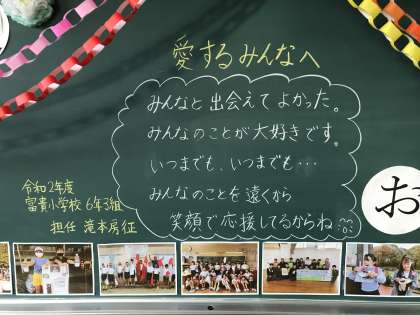 愛するみんなへ
みんなと出会えてよかった。
みんなのことが大好きです。
いつまでも、いつまでも…
みんなのことを遠くから
笑顔で応援してるからね
令和2年度
富貴小学校 6年3組
担任 滝本房征
お